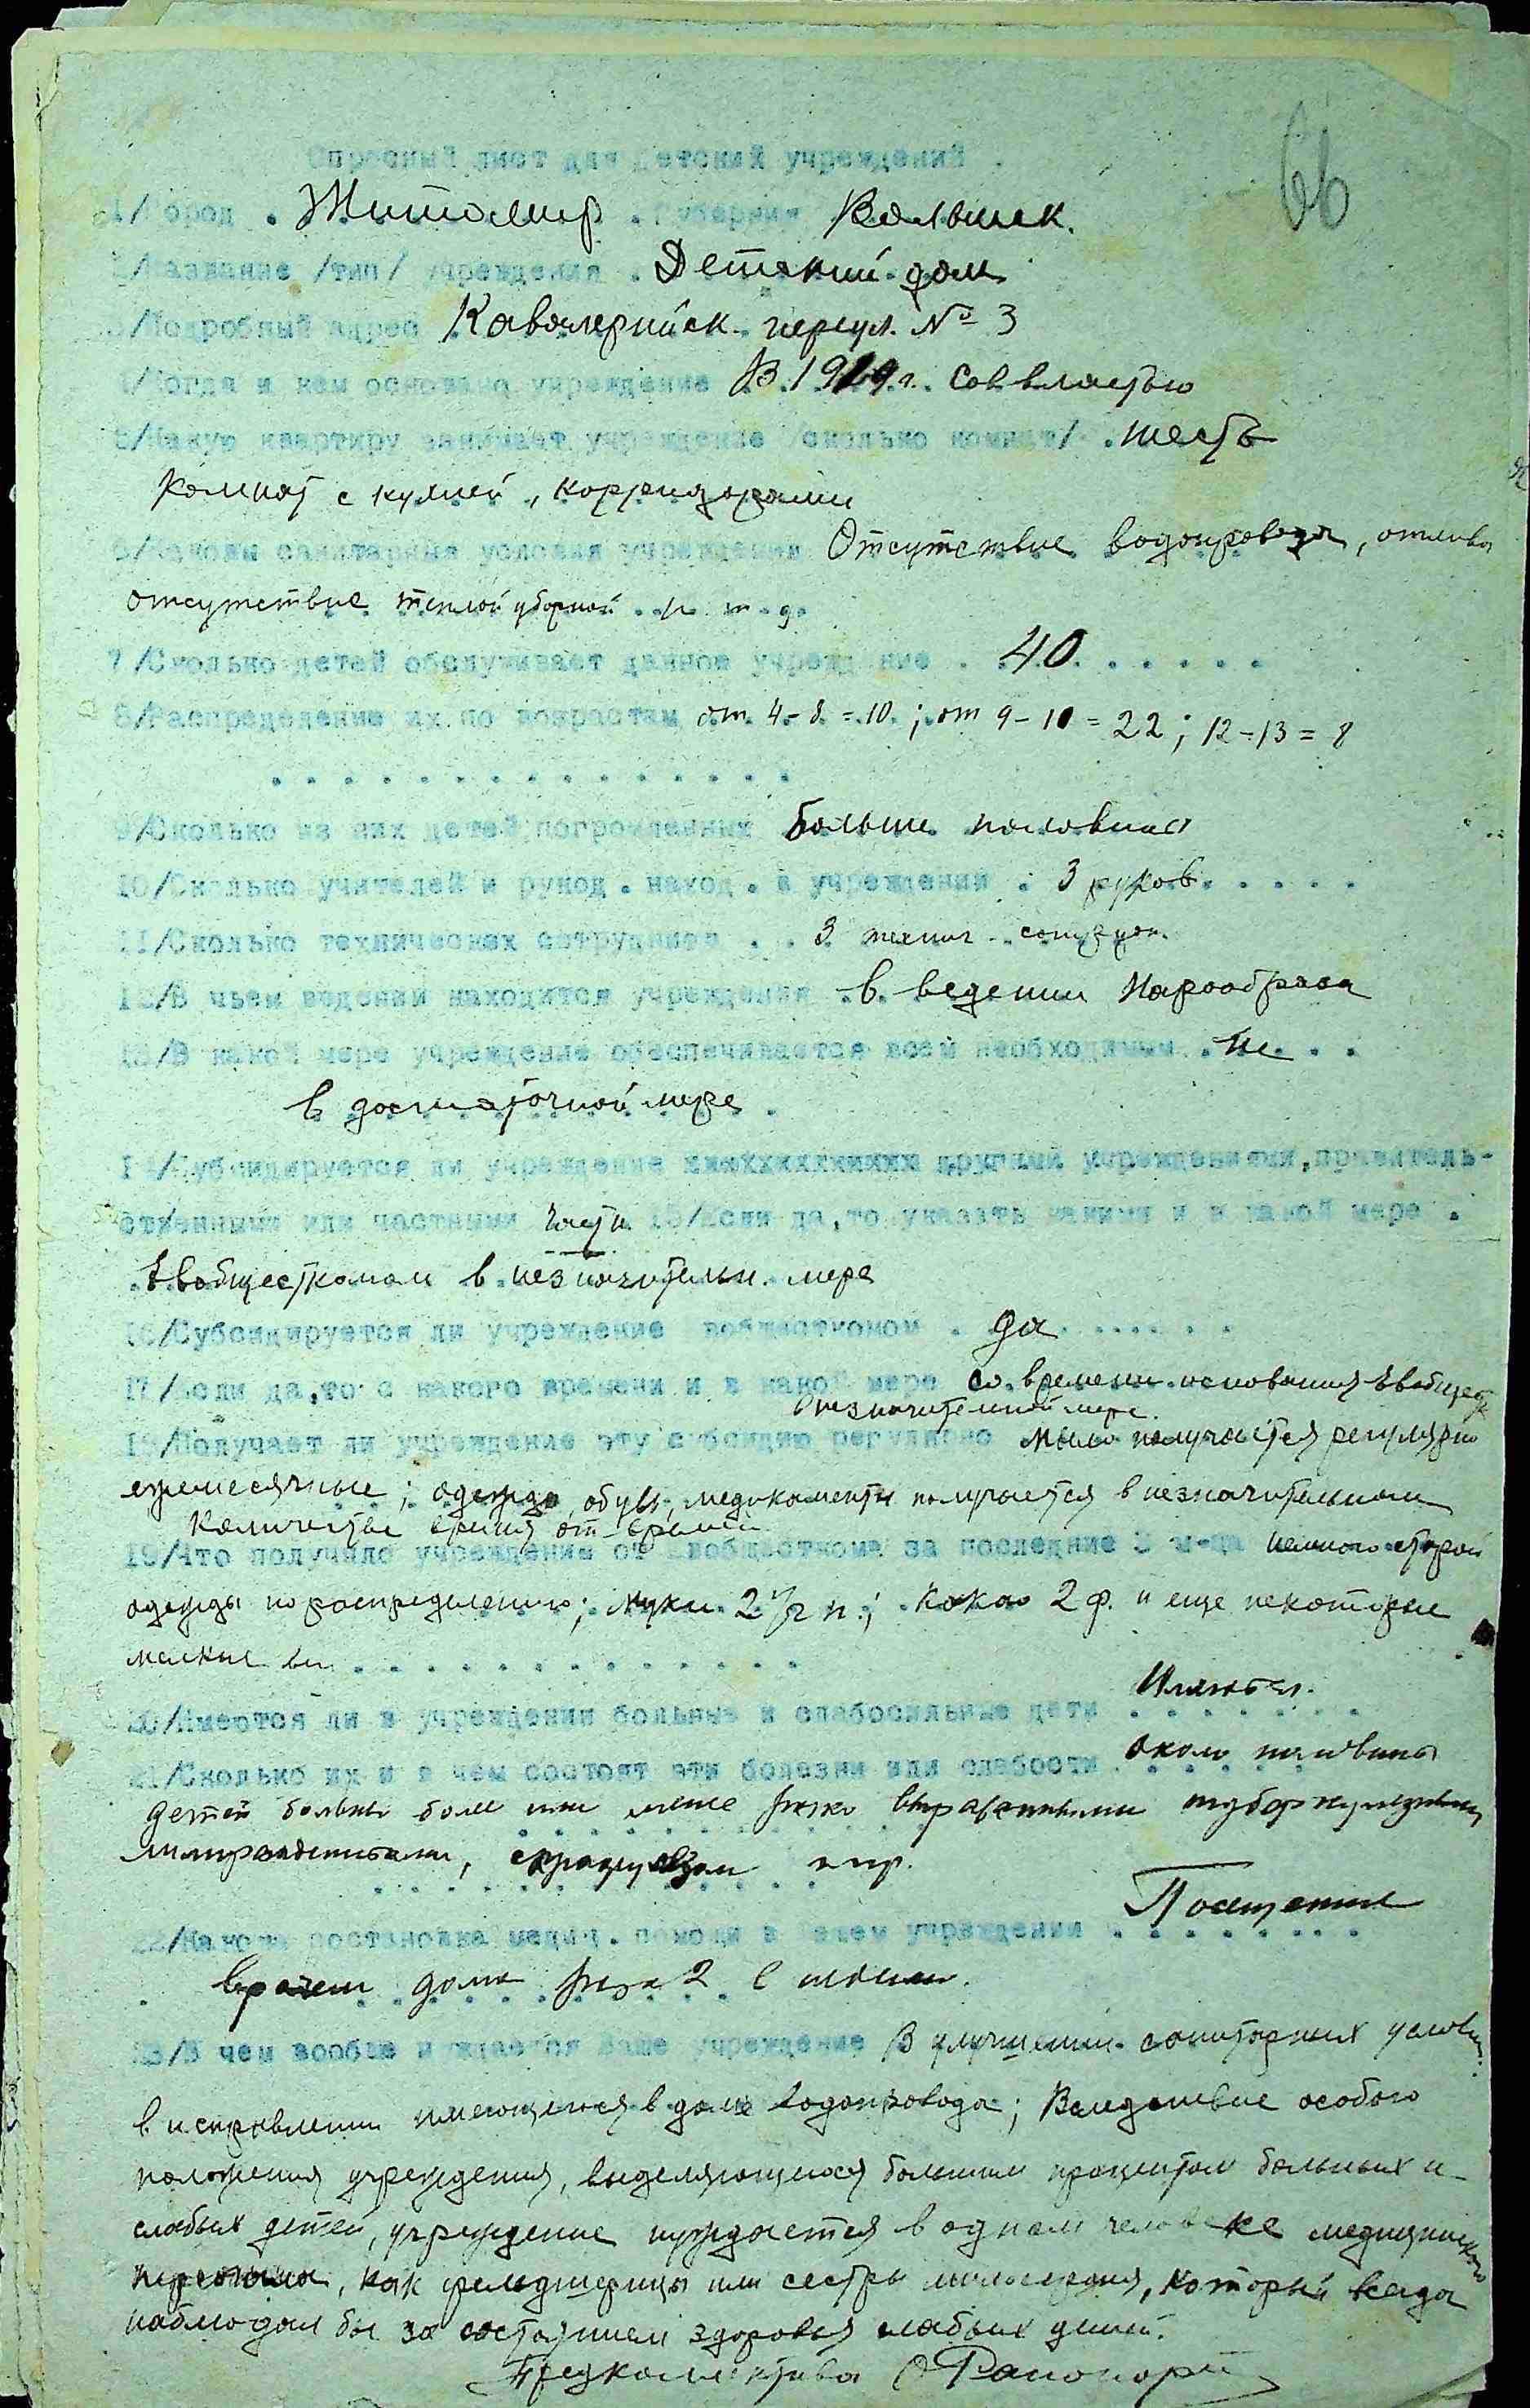 66
Опросный лист для детских учреждений .
1/Город . Житомир . Губерния Волынск.
2/Название /тип/ учреждения . Детский дом
3/Подробный адрес Кавалерийск. переул. № 3
4/Когда и кем основано учреждение В 1919 г. Соввластью
5/Какую квартиру занимает учреждение /сколько комнат/ . шесть
комнат с кухней, корридорами
6/Каковы санитарные условия учреждения Отсутствие водопровода, отлива
отсутствие теплой уборной и т. д.
7/Сколько детей обслуживает данное учреждение . 40 . . . . . .
8/Распределение их по возрастам от 4-8 = 10; от 9-11 = 22; 12-13 = 8
. . . . . . . . . . . . . . .
9/Сколько из них детей погромленных больше половины
10/Сколько учителей и руков. наход. в учреждении . 3 руков. . . . .
11/Сколько технических сотрудников . . 3 технич. сотрудн.
12/В чьем ведении находится учреждение в ведении Наробраза
13/В какой мере учреждение обеспечивается всем необходимым . Не . .
в достаточной мере
14/Субсидируется ли учреждение другими учреждениями, правитель-
ственными или частными 15/Если да, то указать какими и в какой мере .
Евобщесткомом в незначительн. мере
16/Субсидируется ли учреждение вобщесткомом . да . . . . . .
17/Если да, то с какого времени и в какой мере со времени основания Евобщестк
в незначительной мере.
18/Получает ли учреждение эту субсидию регулярно мыло получается регулярно
ежемесячные; одежда, обувь, медикаменты получается в незначительном
количестве время от времени
19/Что получило учреждение от вобщесткома за последние 3 м-ца немного старой
одежды по распределению; муки 2 1/2 п.; какао 2 ф. и еще некоторые
мелкие вещ. . . . . . . . . . . . .
20/Имеются ли в учреждении больные и слабосильные дети Имеются.
21/Сколько их и в чем состоят эти болезни или слабости около половины
детей больны более или менее резко выраженными туберкулезными
лимфаденитами, и пр.
22/Какова постановка медиц. помощи в Вашем учреждении Посещение
врачем дома раза 2 в
23/В чем вообще нуждается Ваше учреждение В улучшении санитарных условий:
в исправлении имеющегося в доме водопровода; Вследствие особого
положения учреждения, выделяющегося большим процентом больных и
слабых детей, учреждение нуждается в одном человеке медицинского
персонала, как фельдшерицы или сестры милосердия, который всегда
наблюдал бы за состоянием здоровья слабых детей.
Предколлектива Рапопорт